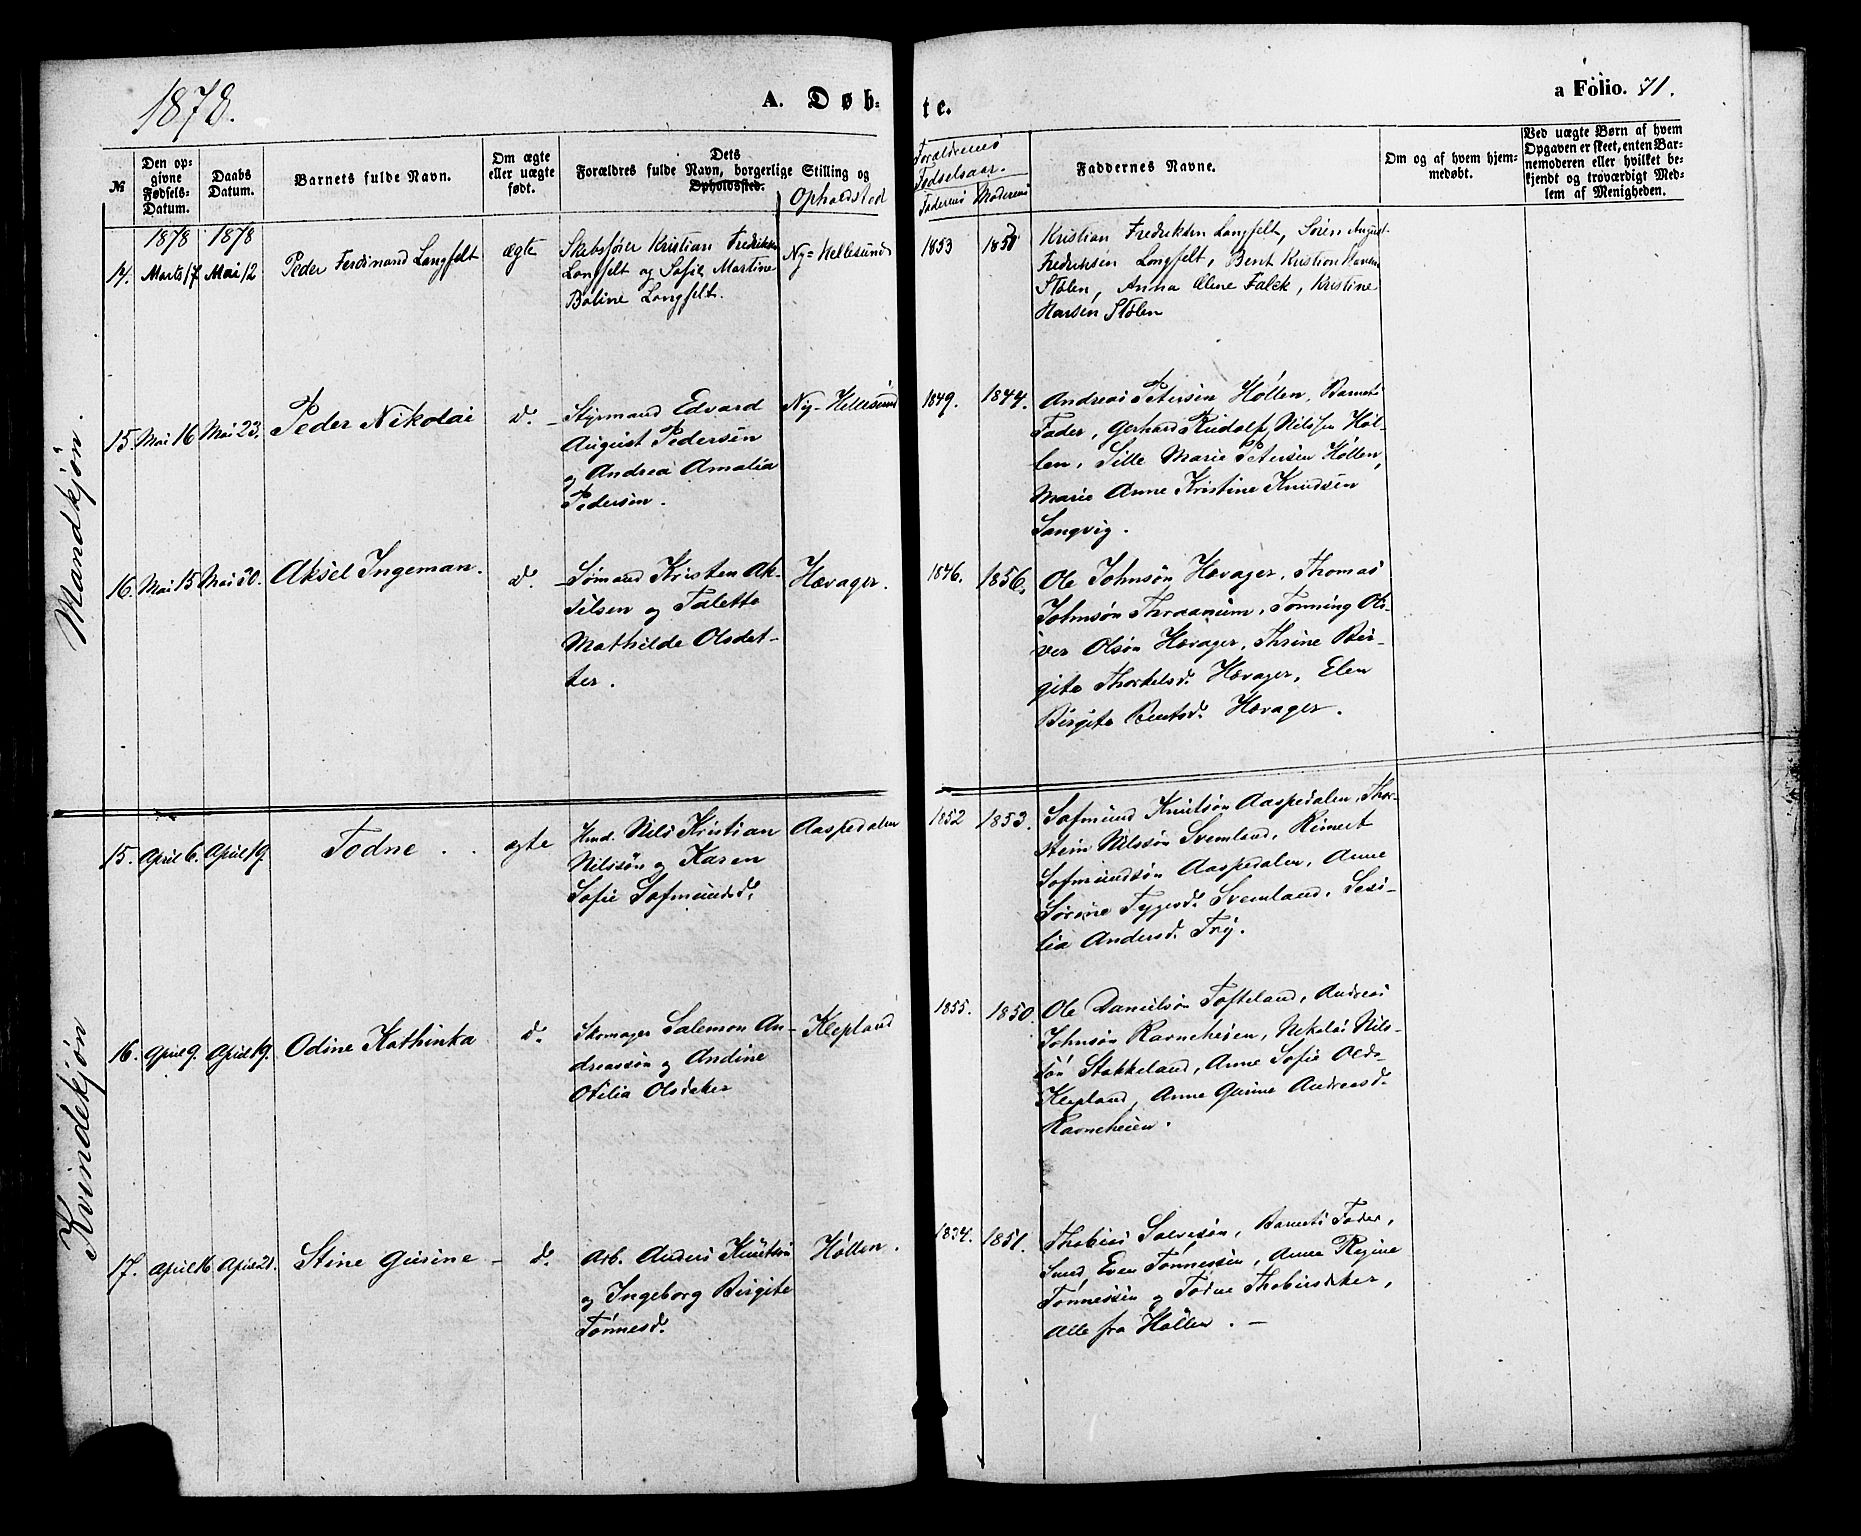 1878.
A. Døb-
te.
a Folio. 71.
№
Den op-
givne
Fødsels-
Datum.
Daabs
Datum.
Barnets fulde Navn.
Om ægte
eller uægte
født.
Dets
Forældres fulde Navn, borgerlige Stilling og
Opholdssted.
Opholdsted
Forældrenes
Fødselsaar.
Faderens Moderens
Faddernes Navne.
Om og af hvem hjem-
medøbt.
Ved uægte Børn af hvem
Opgaven er skeet, enten Bar-
nemoderen eller hvilket be-
kjendt og troværdigt Med-
lem af Menigheden.
Mandkjøn.
1878 1878
14. Marts 17 Mai 12
Peder Ferdinand Langfelt
ægte
Skibsfører Kristian Fredriksen
Langfelt og Sofie Martine
Boline Langfelt.
Ny-Hellesund
1853
Kristian Fredriksen Langfelt, Søren August
Fredriksen Langfelt, Bent Kristian Hansen
Stølen, Anna Olene Falck, Kristine
Hansen Stølen
15. Mai 16 Mai 23.
Peder Nikolai
d.
Styrmand Edvard
August Pedersen
og Andrea Amalia
Pedersen.
Ny-Hellesund
1849. 1844.
Andreas Petersen Høllen, Barnets
Fader, Gerhard Rudolf Nilsen Høl-
len, Sille Marie Petersen Høllen,
Marie Anne Kristine Knudsen
Langvig.
16. Mai 15 Mai 30.
Aksel Ingeman.
d.
Sømand Kristen Ak-
selsen og Talette
Mathilde Olsdat-
ter.
Hævager.
1846. 1856.
Ole Johnsøn Hævager, Thomas
Johnsøn Thraanum, Tønning Oli-
ver Olsøn Hævager, Thrine Bir-
gite Thorkelsd. Hævager, Elen
Birgite Bentsd. Hævager.
Kvindekjøn
15. April 6. April 19.
Todne
ægte
Hmd. Nils Kristian
Nilssøn og Karen
Sofie Sofmundsd.
Aaspedalen
1852 1853.
Sofmund Knutsøn Aaspedalen, Thor-
stein Nilssøn Svemland, Reinert
Sofmundsøn Aaspedalen, Anne
Sørine Tygesd. Svemland, Sesi-
lia Andersd. Try.
16. April 9. April 19.
Odine Kathinka
d.
Skomager Salemon An-
dreassøn og Andine
Otilia Olsdatter
Klepland
1855. 1850.
Ole Danielsøn Tofteland, Andreas
Johnsøn Ravneheien, Nikolai Nils-
søn Stokkeland, Anne Sofie Olsd.
Klepland, Anne Gurine Andreasd.
Ravneheien.
17. April 16 April 21.
Stine Gusine
d.
Arb. Anders Knutsøn
og Ingeborg Birgite
Tønnesd.
Høllen.
1834. 1851.
Thobias Salvesøn, Barnets Fader,
Smed Even Tønnessen, Anne Regine
Tønnessen og Todne Thobiasdatter,
Alle fra Høllen.